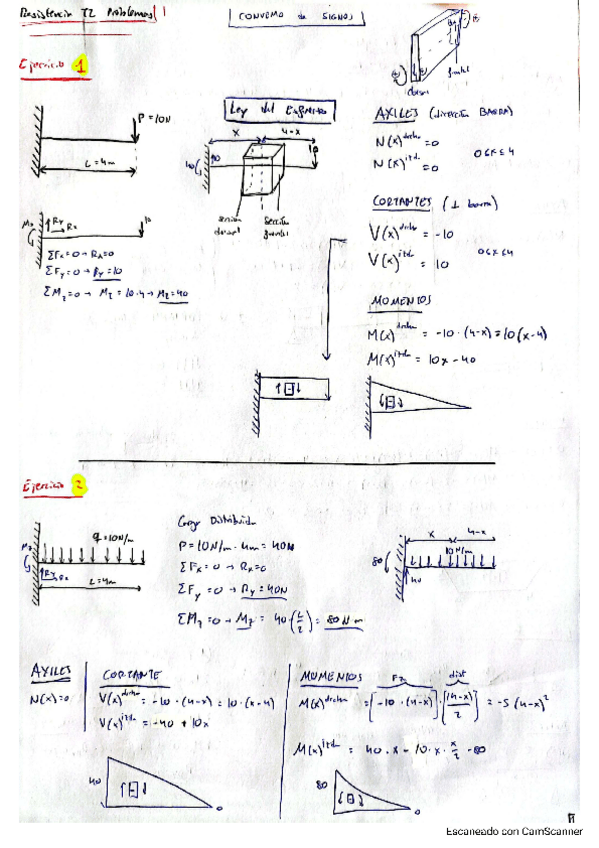 Resistencia T2 Problemas 1
CONVENIO de SIGNOS
Ejercicio 1
dorsal
frontal
P = 10N
L = 4m
Ley del Esfuerzo
x
4-x
10
40
10
sección dorsal
sección frontal
Mz
Ry
Rx
10
ΣFx = 0 → Rx = 0
ΣFy = 0 → Ry = 10
ΣMz = 0 → Mz = 10·4 → Mz = 40
AXILES (dirección BARRA)
N(x)^drcha = 0
N(x)^izda = 0
0≤x≤4
CORTANTES (⊥ barra)
V(x)^drcha = -10
V(x)^izda = 10
0≤x≤4
MOMENTOS
M(x)^drcha = -10·(4-x) = 10(x-4)
M(x)^izda = 10x - 40
Ejercicio 2
q = 10N/m
Mz
Ry
Rx
L = 4m
Carga Distribuida
P = 10N/m · 4m = 40N
ΣFx = 0 → Rx = 0
ΣFy = 0 → Ry = 40N
ΣMz = 0 → Mz = 40·(L/2) = 80N m
x
4-x
10N/m
80
40
AXILES
N(x) = 0
CORTANTE
V(x)^drcha = -10·(4-x) = 10·(x-4)
V(x)^izda = -40 + 10x
40
0
MOMENTOS
Fz
dist
M(x)^drcha = [-10·(4-x)]·[(4-x)/2] = -5(4-x)²
M(x)^izda = 40·x - 10·x·x/2 - 80
80
0
Escaneado con CamScanner